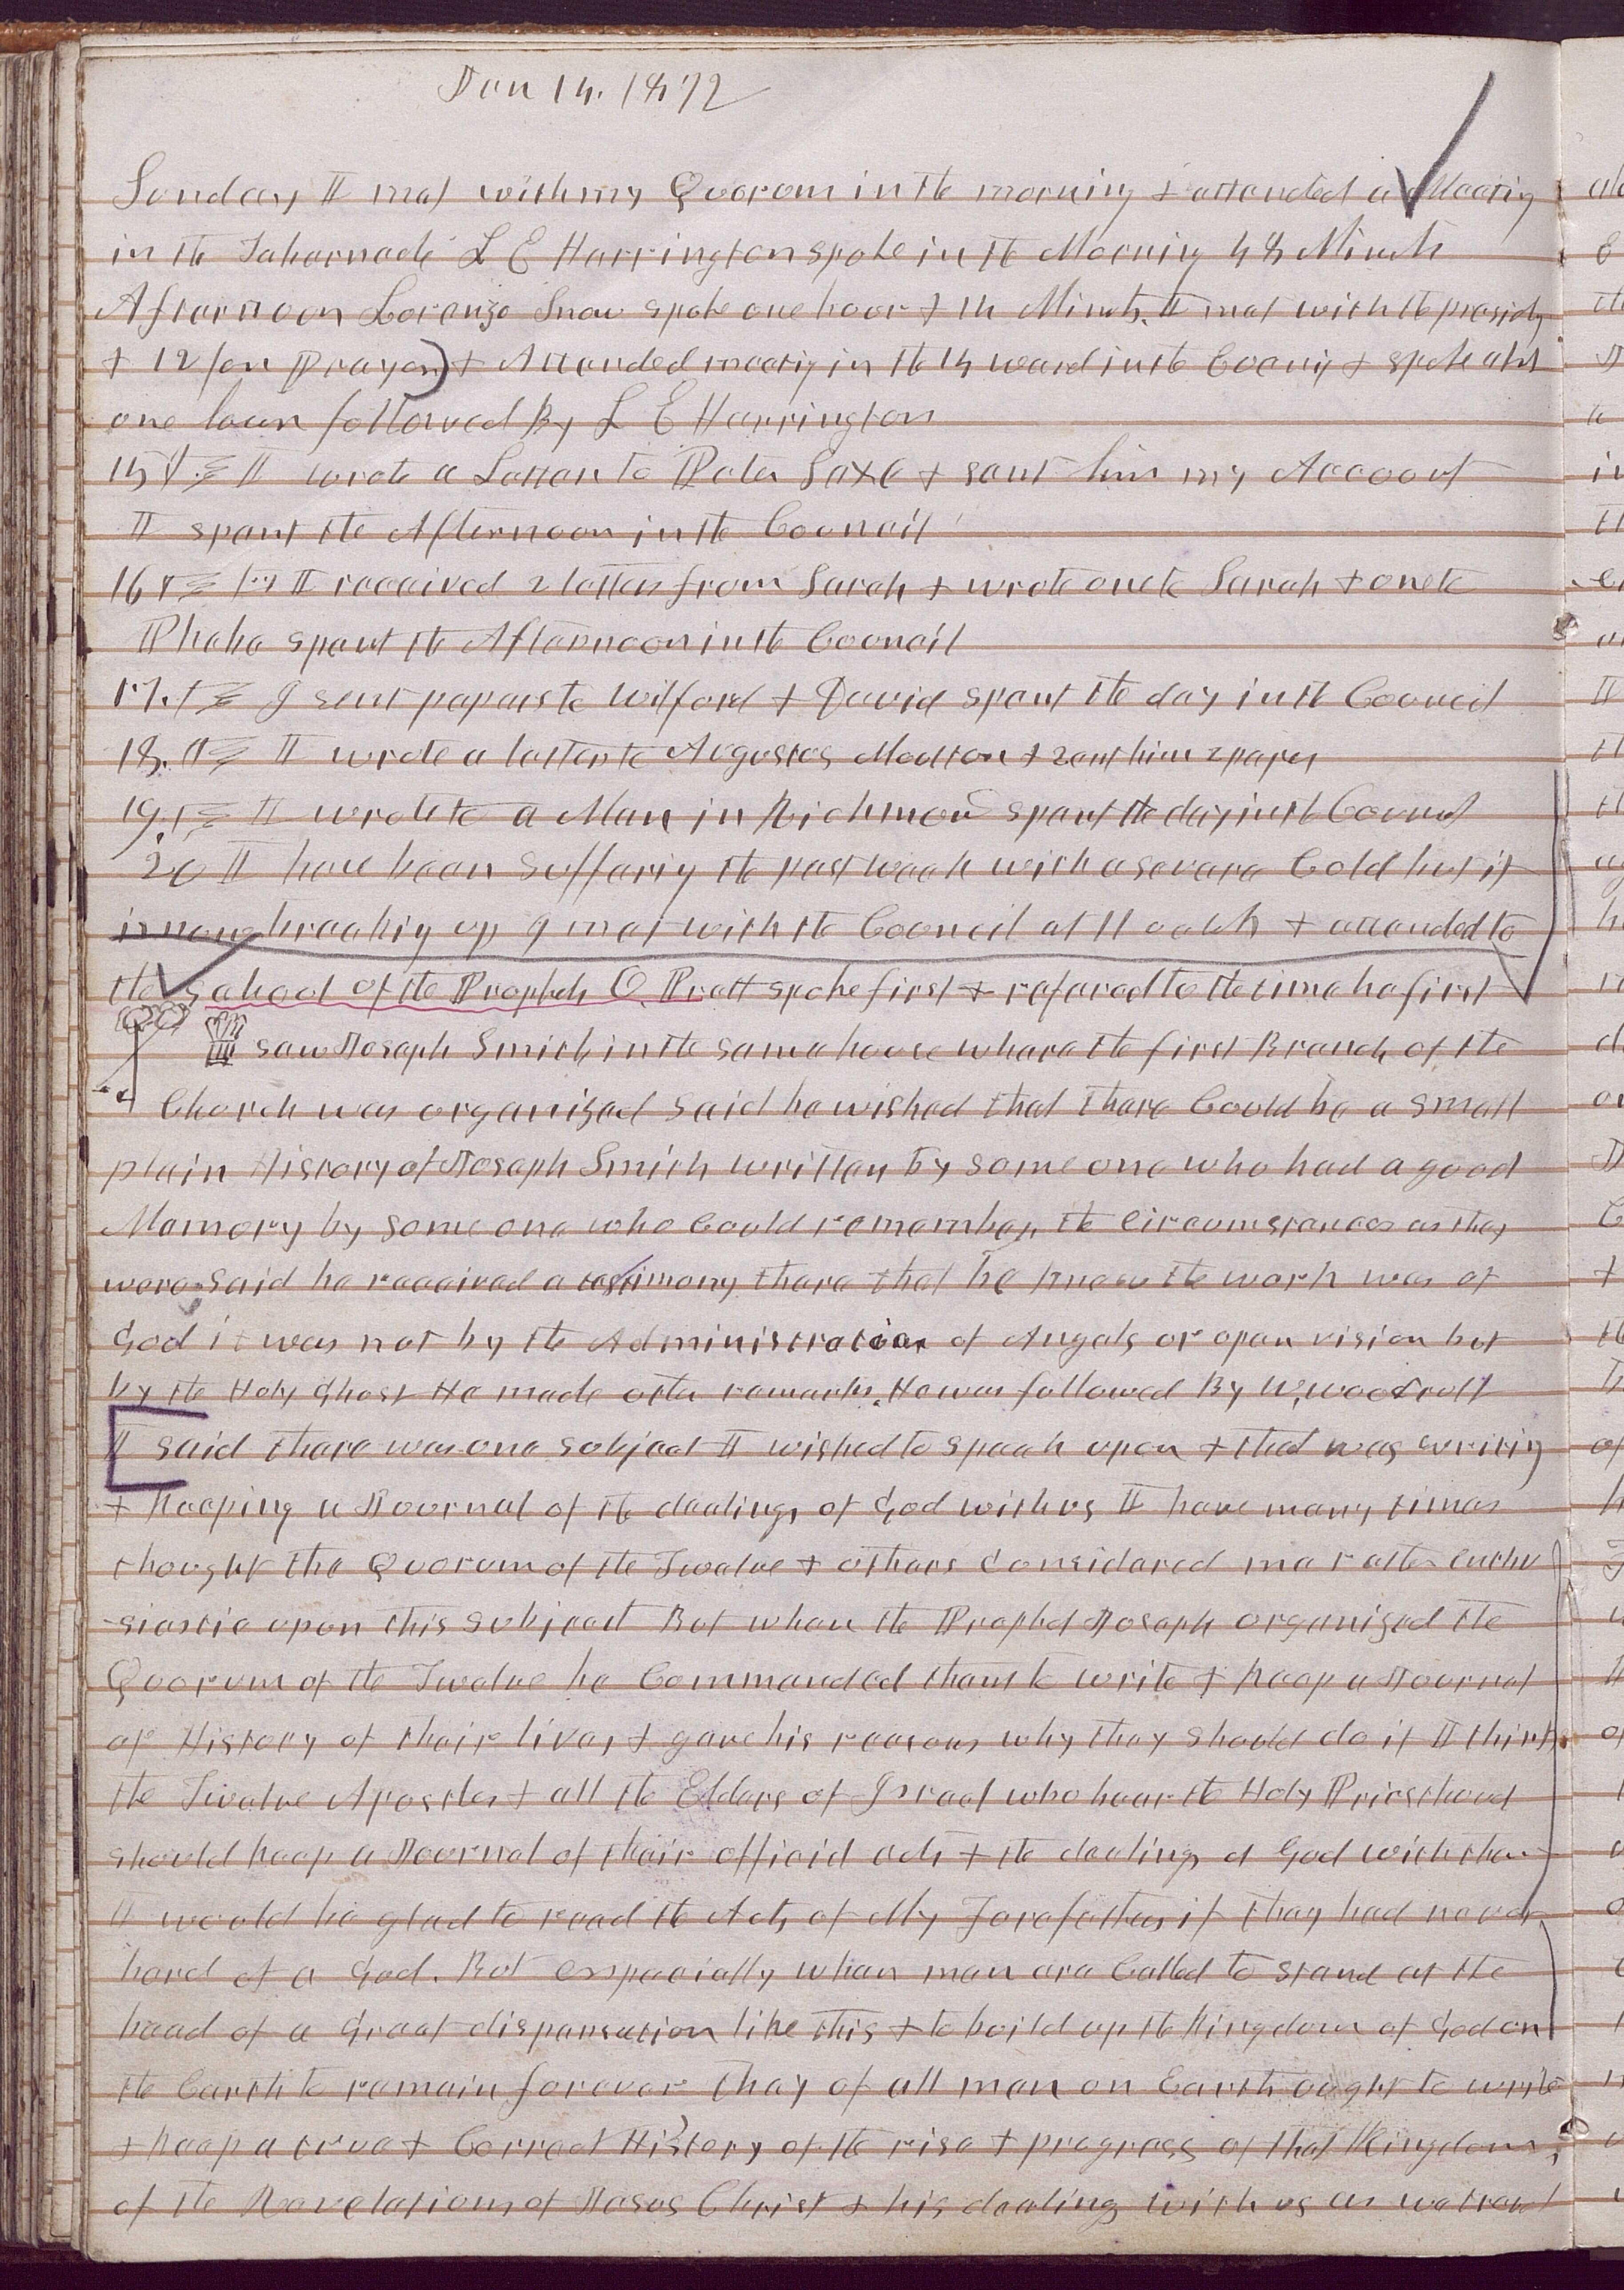 Jan 14. 1872
Sunday I met with my Quorum in the morning & attended a Meeting
in the Tabernacle L E Harrington spoke in the Morning 48 Minuts
Afternoon Lorenzo Snow spoke one hour & 14 Minuts. I met with the presidy
& 12 for Prayer) & Attended meetig in the 14 ward in the Eveng & spoke abt
one hour followed By L E Harrington
15 I wrote a Letter to Peter Saxe & sent him my Account
I spent the Afternoon in the Council
16 I received 2 letters from Sarah & wrote one to Sarah & one to
Phebe spent the Afternoon in the Council
17. I sent papers to Wilford & David spent the day in the Council
18. I wrote a letter to Augustus & sent him 2 papers
19. I wrote to a Man in Richmond spent the day in the Council
20 I have been Suffering the past week with a severe Cold but it
is now breaking up I met with the Council at 11 oclok & attended to
the School of the Prophets O Pratt spoke first & refered to the time he first
saw Joseph Smith in the same house where the first Branch of the
Church was organized said he wished that there Could be a small
plain History of Joseph Smith written by some one who had a good
Memory by some one who Could remember the Circumstances as they
were. said he received a testimony there that he knew the work was of
God it was not by the Administration of Angels or open vision but
by the Holy Ghost He made other remarks. He was followed By W, woodruff
I said there was one subject I wished to speak upon & that was writing
& keeping a Journal of the dealings of God with us I have many times
thought the Quorum of the Twelve & others Considered me rather enthu
-siastic upon this subject But when the Prophet Joseph organized the
Quorum of the Twelve he Commanded them to write & keep a Journal
or History of their lives, & gave his reasons why they should do it I think
the Twelve Apostles & all the Elders of Israel who bear the Holy Priesthood
should keep a Journal of their official acts & the dealings of God with them
I would be glad to read the Acts of My Forefathers if they had never
herd of a God. But espacially when men are Called to stand at the
head of a Great dispensation like this & to build up the Kingdom of God on
the Earth to remain forever they of all men on Earth ought to write
& keep a true & Correct History of the rise & progress of that Kingdom,
of the Revelations of Jesus Christ & his dealings with us as we travel